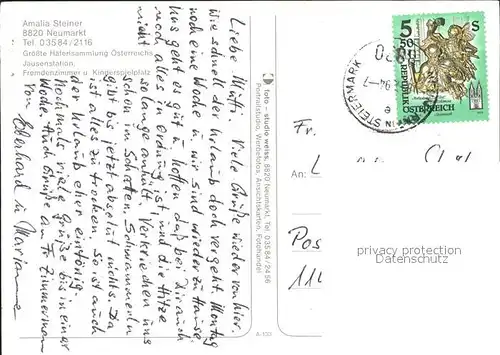 Amalia Steiner
8820 Neumarkt
Tel. 03584/2116
Größte Häferlsammlung Österreichs
Jausenstation,
Fremdenzimmer u. Kinderspielplatz
Liebe Mutti. Viele Grüße wieder von hier.
Wie schnell der Urlaub doch vergeht. Montag
noch eine Woche u. wir sind wieder zu Hause.
Uns geht es gut u. hoffen daß bei Dir auch
noch alles in Ordnung ist, und die Hitze
solange anhält. Verkriechen uns
schon im Schatten. Schwammerln
gibt bis jetzt absolut nichts. Da
alles zu trocken ist, so ist auch
der Urlaub eher eintönig.
Nochmals viele Grüße bis in einer
Woche. Auch Grüße an Fr. Zimmerman
von Eberhard u. Marianne
foto - studio weiss, 8820 Neumarkt, Tel. 03584/2456
Portraitstudio, Werbefotos, Ansichtskarten, Fotohandel
A-150
5 50 S
REPUBLIK
ÖSTERREICH
IN STEIERMARK
Fr.
An:
Pos
privacy protection
Datenschutz